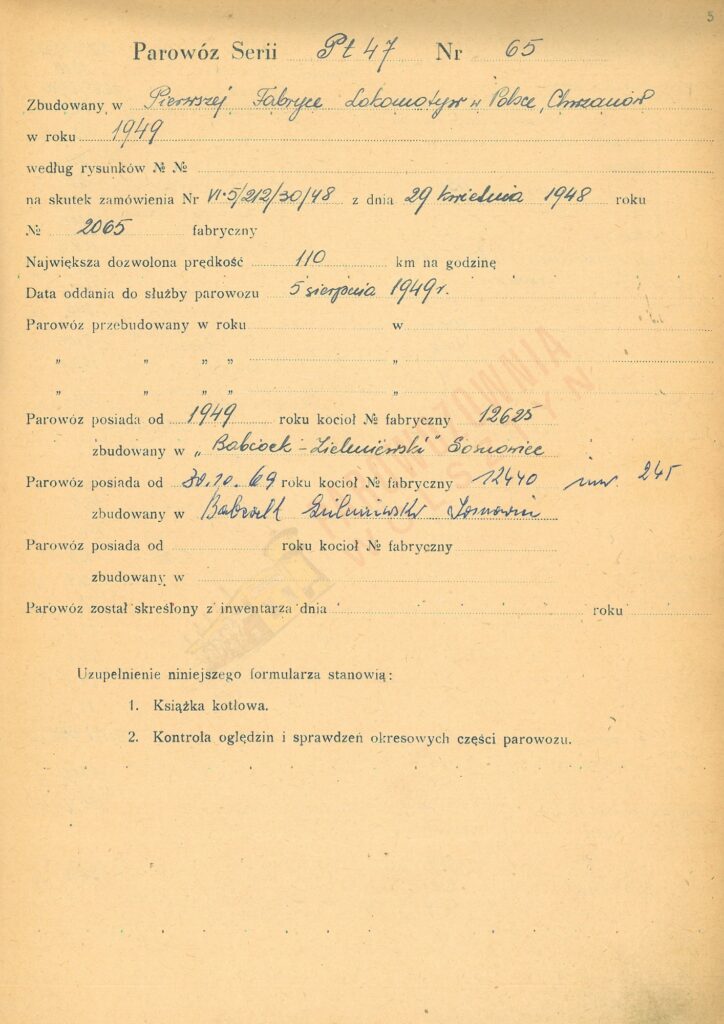 5
Parowóz Serii Pt 47 Nr 65
Zbudowany w Pierwszej Fabryce Lokomotyw w Polsce, Chrzanów
w roku 1949
według rysunków № №
na skutek zamówienia Nr VI·5/212/30/48 z dnia 29 kwietnia 1948 roku
№ 2065 fabryczny
Największa dozwolona prędkość 110 km na godzinę
Data oddania do służby parowozu 5 sierpnia 1949r.
Parowóz przebudowany w roku w
„ „ „ „ „
„ „ „ „ „
Parowóz posiada od 1949 roku kocioł № fabryczny 12625
zbudowany w „Babcock-Zieleniewski" Sosnowiec
Parowóz posiada od 30.10.69 roku kocioł № fabryczny 12440 inw. 245
zbudowany w Babcock Zieleniewski Sosnowiec
Parowóz posiada od roku kocioł № fabryczny
zbudowany w
Parowóz został skreślony z inwentarza dnia roku
Uzupełnienie niniejszego formularza stanowią:
1. Książka kotłowa.
2. Kontrola oględzin i sprawdzeń okresowych części parowozu.